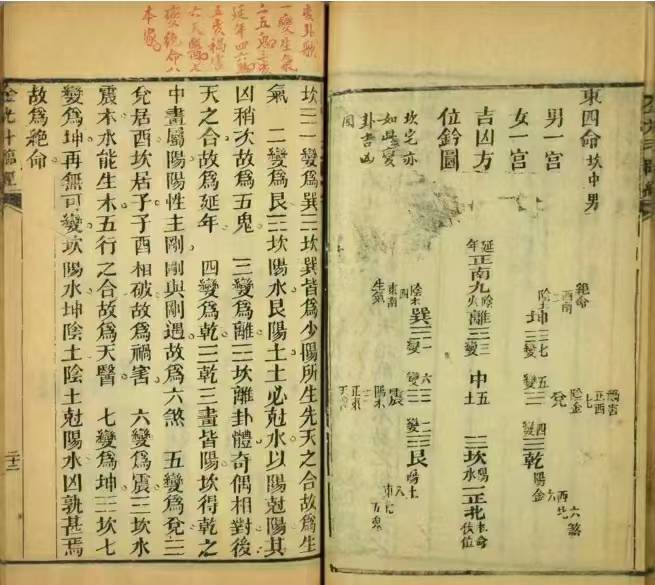 東四命坎中男
男一宮
女一宮
吉凶方
位鈐圖
坎宅亦
如此變
卦吉凶
同
絕命
西南
二
陰土
坤☷七變
延年
正南九
陰火
離☲三變
生氣
東南
四
陰木
巽☴一變
禍害
正西
七
陰金
兌
五變
中五土
震
陽木
六變
六煞
西北
六
陽金
四變
乾
坎
陽水
一正北
本命
伏位
二變
艮
陽土
八
五鬼
變卦歌
一變生氣
二五鬼三
延年四六煞
五變禍害
六天醫七
變絕命八
本家
坎☵一變爲巽☴坎巽皆爲少陽所生先天之合故爲生
氣 二變爲艮☶坎陽水艮陽土土必尅水以陽尅陽其
凶稍次故爲五鬼 三變爲離☲坎離卦體奇偶相對後
天之合故爲延年 四變爲乾☰乾三畫皆陽坎得乾之
中畫屬陽陽性主剛剛與剛遇故爲六煞 五變爲兌☱
兌居酉坎居子子酉相破故爲禍害 六變爲震☳坎水
震木水能生木五行之合故爲天醫 七變爲坤☷坎七
變爲坤再無可變坎陽水坤陰土陰土尅陽水凶孰甚焉
故爲絕命
二十三